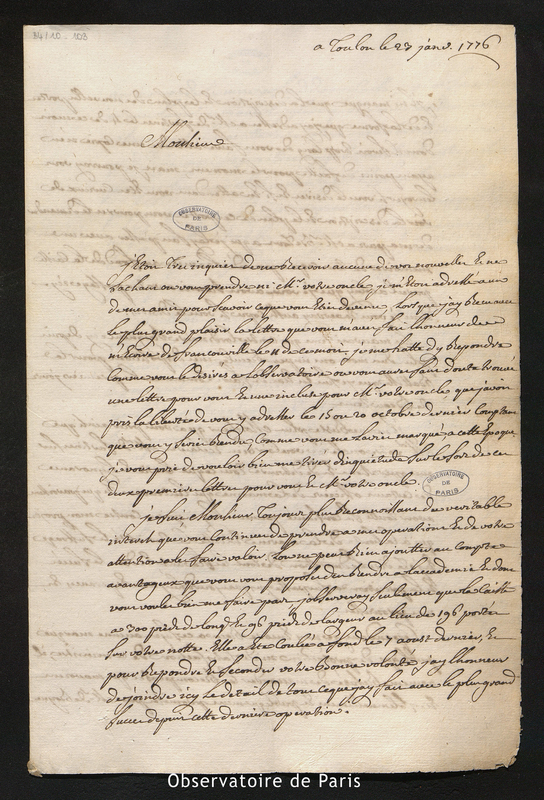 34/10-103
a Toulon le 23 janv. 1776
Monsieur
OBSERVATOIRE DE PARIS
j'étois Tres inquiet de ne Recevoir aucune de vos nouvelles Et ne
sachant ou vous prendre ni Mr. votre oncle je m'étois adressé a un
de mes amis pour scavoir ce que vous Etiés devenu, Lorsque j'ay Receu avec
le plus grand plaisir la lettre que vous m'avés fait l'honneur de
m'écrire de francouville le 11 de ce mois, je me hatte d'y Repondre
Comme vous le desirés a l'observatoire ou vous aurés sans doute trouvé
une lettre pour vous Et une incluse pour Mr. votre oncle que j'avois
pris la liberté de vous y adresser le 15 ou 20 octobre dernier Comptant
que vous y seriés Rendu Comme vous me l'aviés marqué a cette Epoque,
je vous prie de vouloir bien me tirer d'inquietude sur le sort de ces
deux premieres lettres pour vous Et Mr. votre oncle.
OBSERVATOIRE DE PARIS
je suis Monsieur Toujours plus Reconnoissant du veritable
interest que vous Continués de prendre a mes operations Et de votre
attention a les faire valoir. L'on ne peut Rien ajoutter au Compte
avantageux que vous vous proposés d'en Rendre a l'academie Et dont
vous voulés bien me faire part, j'observeray seulement que la Caisse
a 300 pieds de long Et 96 pieds de largeur au lieu de 196 portés
sur votre notte. Elle a Eté Coulée a fond le 7 aoust dernier, Et
pour Repondre Et seconder votre bonne volonté j'ay l'honneur
de joindre icy le detail de tout ce que j'ay fait avec le plus grand
succés depuis cette derniere operation.
Observatoire de Paris